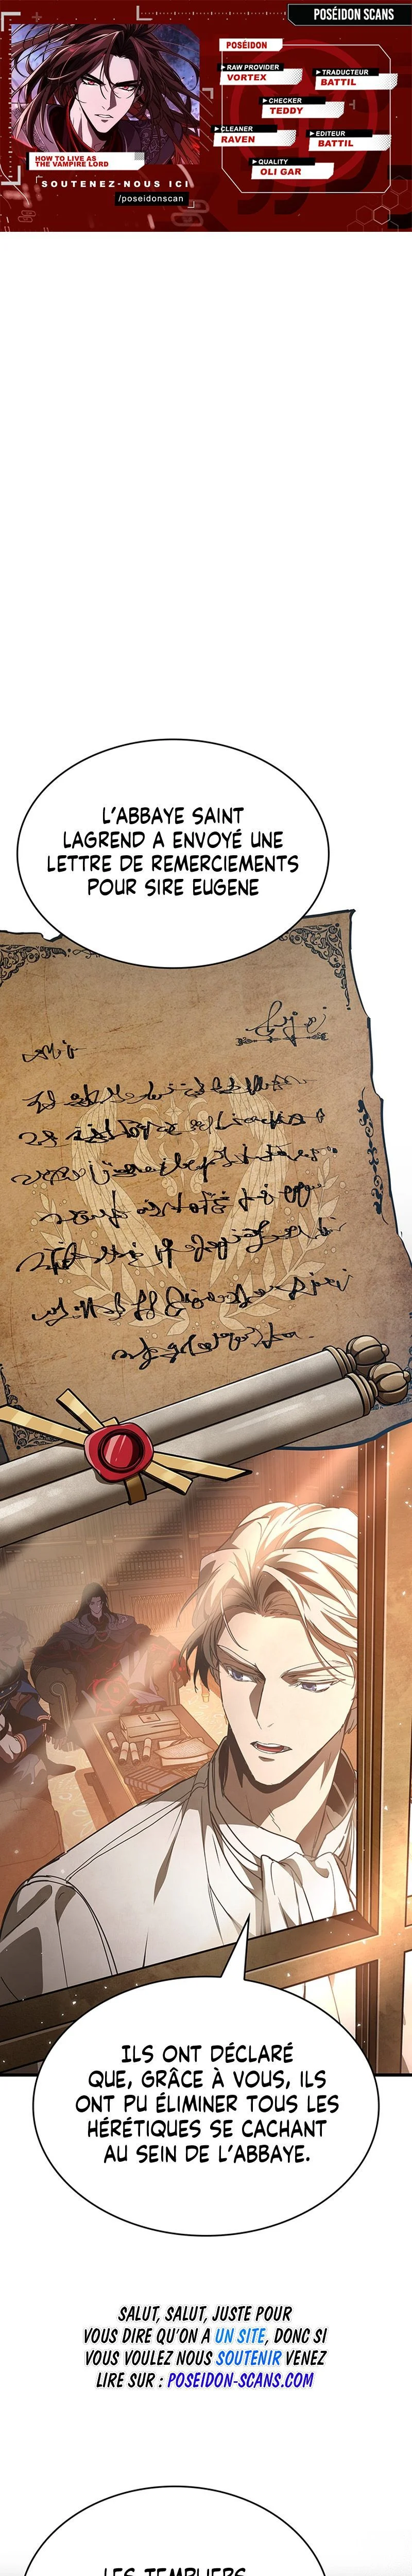 POSÉIDON SCANS
POSÉIDON
RAW PROVIDER
VORTEX
TRADUCTEUR
BATTIL
CHECKER
TEDDY
CLEANER
RAVEN
EDITEUR
BATTIL
QUALITY
OLI GAR
HOW TO LIVE AS
THE VAMPIRE LORD
SOUTENEZ-NOUS ICI
/poseidonscan
L'ABBAYE SAINT
LAGREND A ENVOYÉ UNE
LETTRE DE REMERCIEMENTS
POUR SIRE EUGENE
ILS ONT DÉCLARÉ
QUE, GRÂCE À VOUS, ILS
ONT PU ÉLIMINER TOUS LES
HÉRÉTIQUES SE CACHANT
AU SEIN DE L'ABBAYE.
SALUT, SALUT, JUSTE POUR
VOUS DIRE QU'ON A UN SITE, DONC SI
VOUS VOULEZ NOUS SOUTENIR VENEZ
LIRE SUR : POSEIDON-SCANS.COM
LES TEMPLIERS